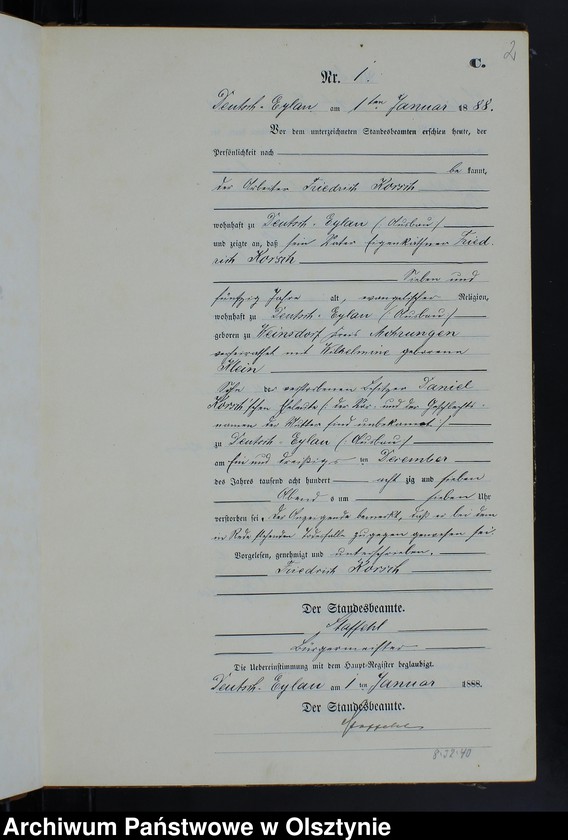 2
C.
Nr. 1.
Deutsch-Eylau am 1ten Januar 1888.
Vor dem unterzeichneten Standesbeamten erschien heute, der
Persönlichkeit nach
bekannt,
der Arbeiter Friedrich Korsch
wohnhaft zu Deutsch-Eylau (Ausbau)
und zeigte an, daß sein Vater Eigenkäthner Fried-
rich Korsch
Sieben und
fünfzig Jahre alt, evangelischer Religion,
wohnhaft zu Deutsch-Eylau (Ausbau)
geboren zu Weinsdorf Kreis Mohrungen
verheirathet mit Wilhelmine geborene
Klein
Sohn der verstorbenen Besitzer Daniel
Korsch'schen Eheleute (: der Vor- und der Geschlechts-
namen der Mutter sind unbekannt :)
zu Deutsch-Eylau (Ausbau)
am Ein und dreißigsten December
des Jahres tausend acht hundert acht zig und sieben
Abends um sieben Uhr
verstorben sei. Der Anzeigende bemerkt, daß er bei dem
in Rede stehenden Todesfalle zugegen gewesen sei.
Vorgelesen, genehmigt und unterschrieben.
Friedrich Korsch
Der Standesbeamte.
Staffehl
Bürgermeister
Die Uebereinstimmung mit dem Haupt-Register beglaubigt.
Deutsch-Eylau am 1ten Januar 1888.
Der Standesbeamte.
Staffehl
8-22-40
Archiwum Państwowe w Olsztynie